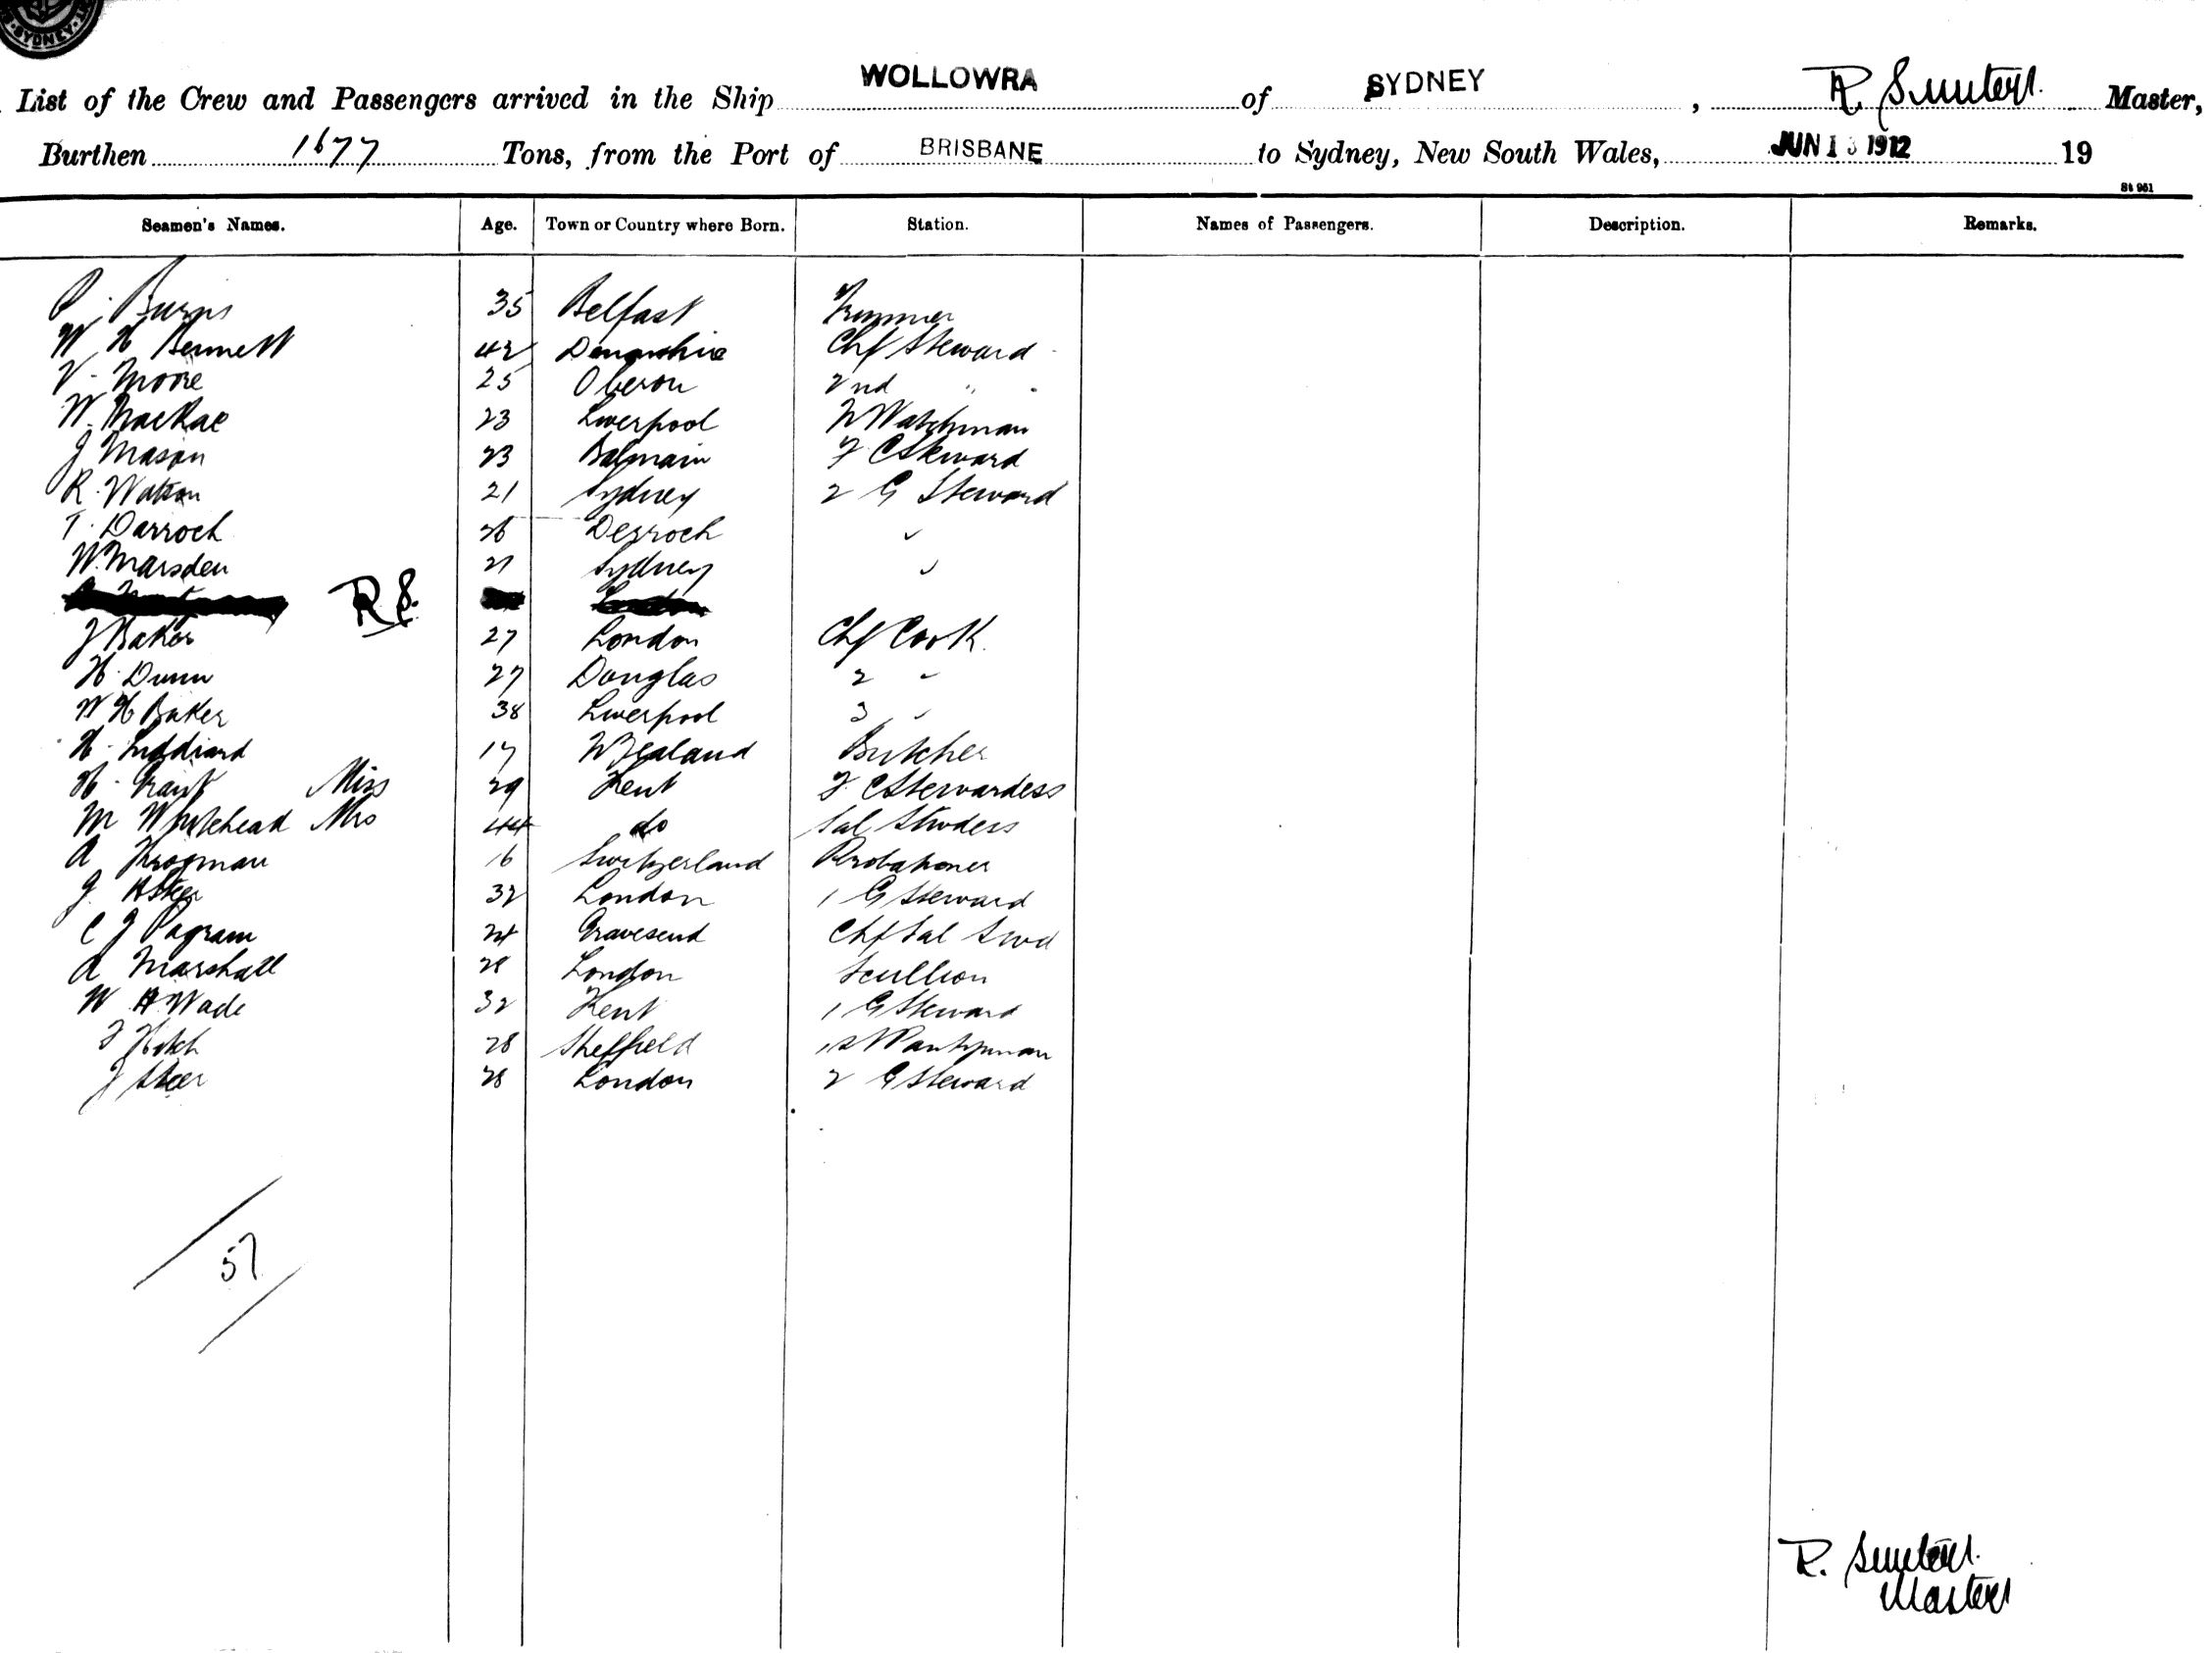 SYDNEY
List of the Crew and Passengers arrived in the Ship WOLLOWRA of SYDNEY, R. Master,
Burthen 1677 Tons, from the Port of BRISBANE to Sydney, New South Wales, JUN 13 1912 19
St 961
Seamen's Names. Age. Town or Country where Born. Station. Names of Passengers. Description. Remarks.
P. Burns 35 Belfast Trimmer
W H Bennett 42 Devonshire Chf Steward
V. Moore 25 Oberon 2nd " "
W. MacRae 23 Liverpool N Watchman
J Mason 23 Balmain F C Steward
R. Watson 21 Sydney 2 G Steward
T. Darroch 26 Derroch "
W. Marsden 21 Sydney "
R S.
J Baker 27 London Chf Cook.
H. Dunn 27 Douglas 2 "
W H Baker 38 Liverpool 3 "
H. Liddiard 17 N Zealand Butcher
H. Grant Miss 29 Kent F. C Stewardess
M Whitehead Mrs 44 do Sal Stwdess
A Krogman 16 Switzerland Probationer
J. 32 London 1 G Steward
C J Pagram 24 Gravesend Chf Sal Swd
A Marshall London Scullion
W H Wade 32 Kent 1 G Steward
F 28 Sheffield 1st Pantryman
J Steer 28 London 2 G Steward
57
R.
Master